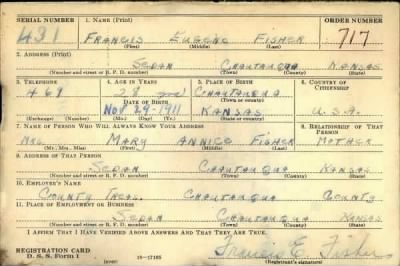 SERIAL NUMBER 1. NAME (Print) ORDER NUMBER
431 FRANCIS EUGENE FISHER 717
(First) (Middle) (Last)
2. ADDRESS (Print)
SEDAN CHAUTAUQUA KANSAS
(Number and street or R. F. D. number) (Town) (County) (State)
3. TELEPHONE 4. AGE IN YEARS 5. PLACE OF BIRTH 6. COUNTRY OF CITIZENSHIP
469 28 CHAUTAUQUA
DATE OF BIRTH (Town or county)
Nov 29-1911 KANSAS U.S.A.
(Exchange) (Number) (Mo.) (Day) (Yr.) (State or country)
7. NAME OF PERSON WHO WILL ALWAYS KNOW YOUR ADDRESS 8. RELATIONSHIP OF THAT PERSON
MRS. MARY ANNICE FISHER MOTHER
(Mr., Mrs., Miss) (First) (Middle) (Last)
9. ADDRESS OF THAT PERSON
SEDAN CHAUTAUQUA KANSAS
(Number and street or R. F. D. number) (Town) (County) (State)
10. EMPLOYER'S NAME
COUNTY TREAS. CHAUTAUQUA COUNTY
11. PLACE OF EMPLOYMENT OR BUSINESS
SEDAN CHAUTAUQUA KANSAS
(Number and street or R. F. D. number) (Town) (County) (State)
I AFFIRM THAT I HAVE VERIFIED ABOVE ANSWERS AND THAT THEY ARE TRUE.
REGISTRATION CARD Francis E. Fisher
D. S. S. Form 1 (over) 16-17105 (Registrant's signature)